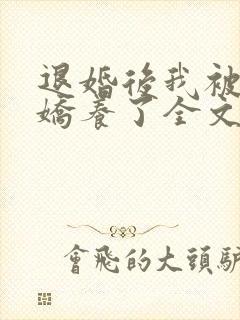 退婚後我被
嬌養了全文
會飛的大頭驴